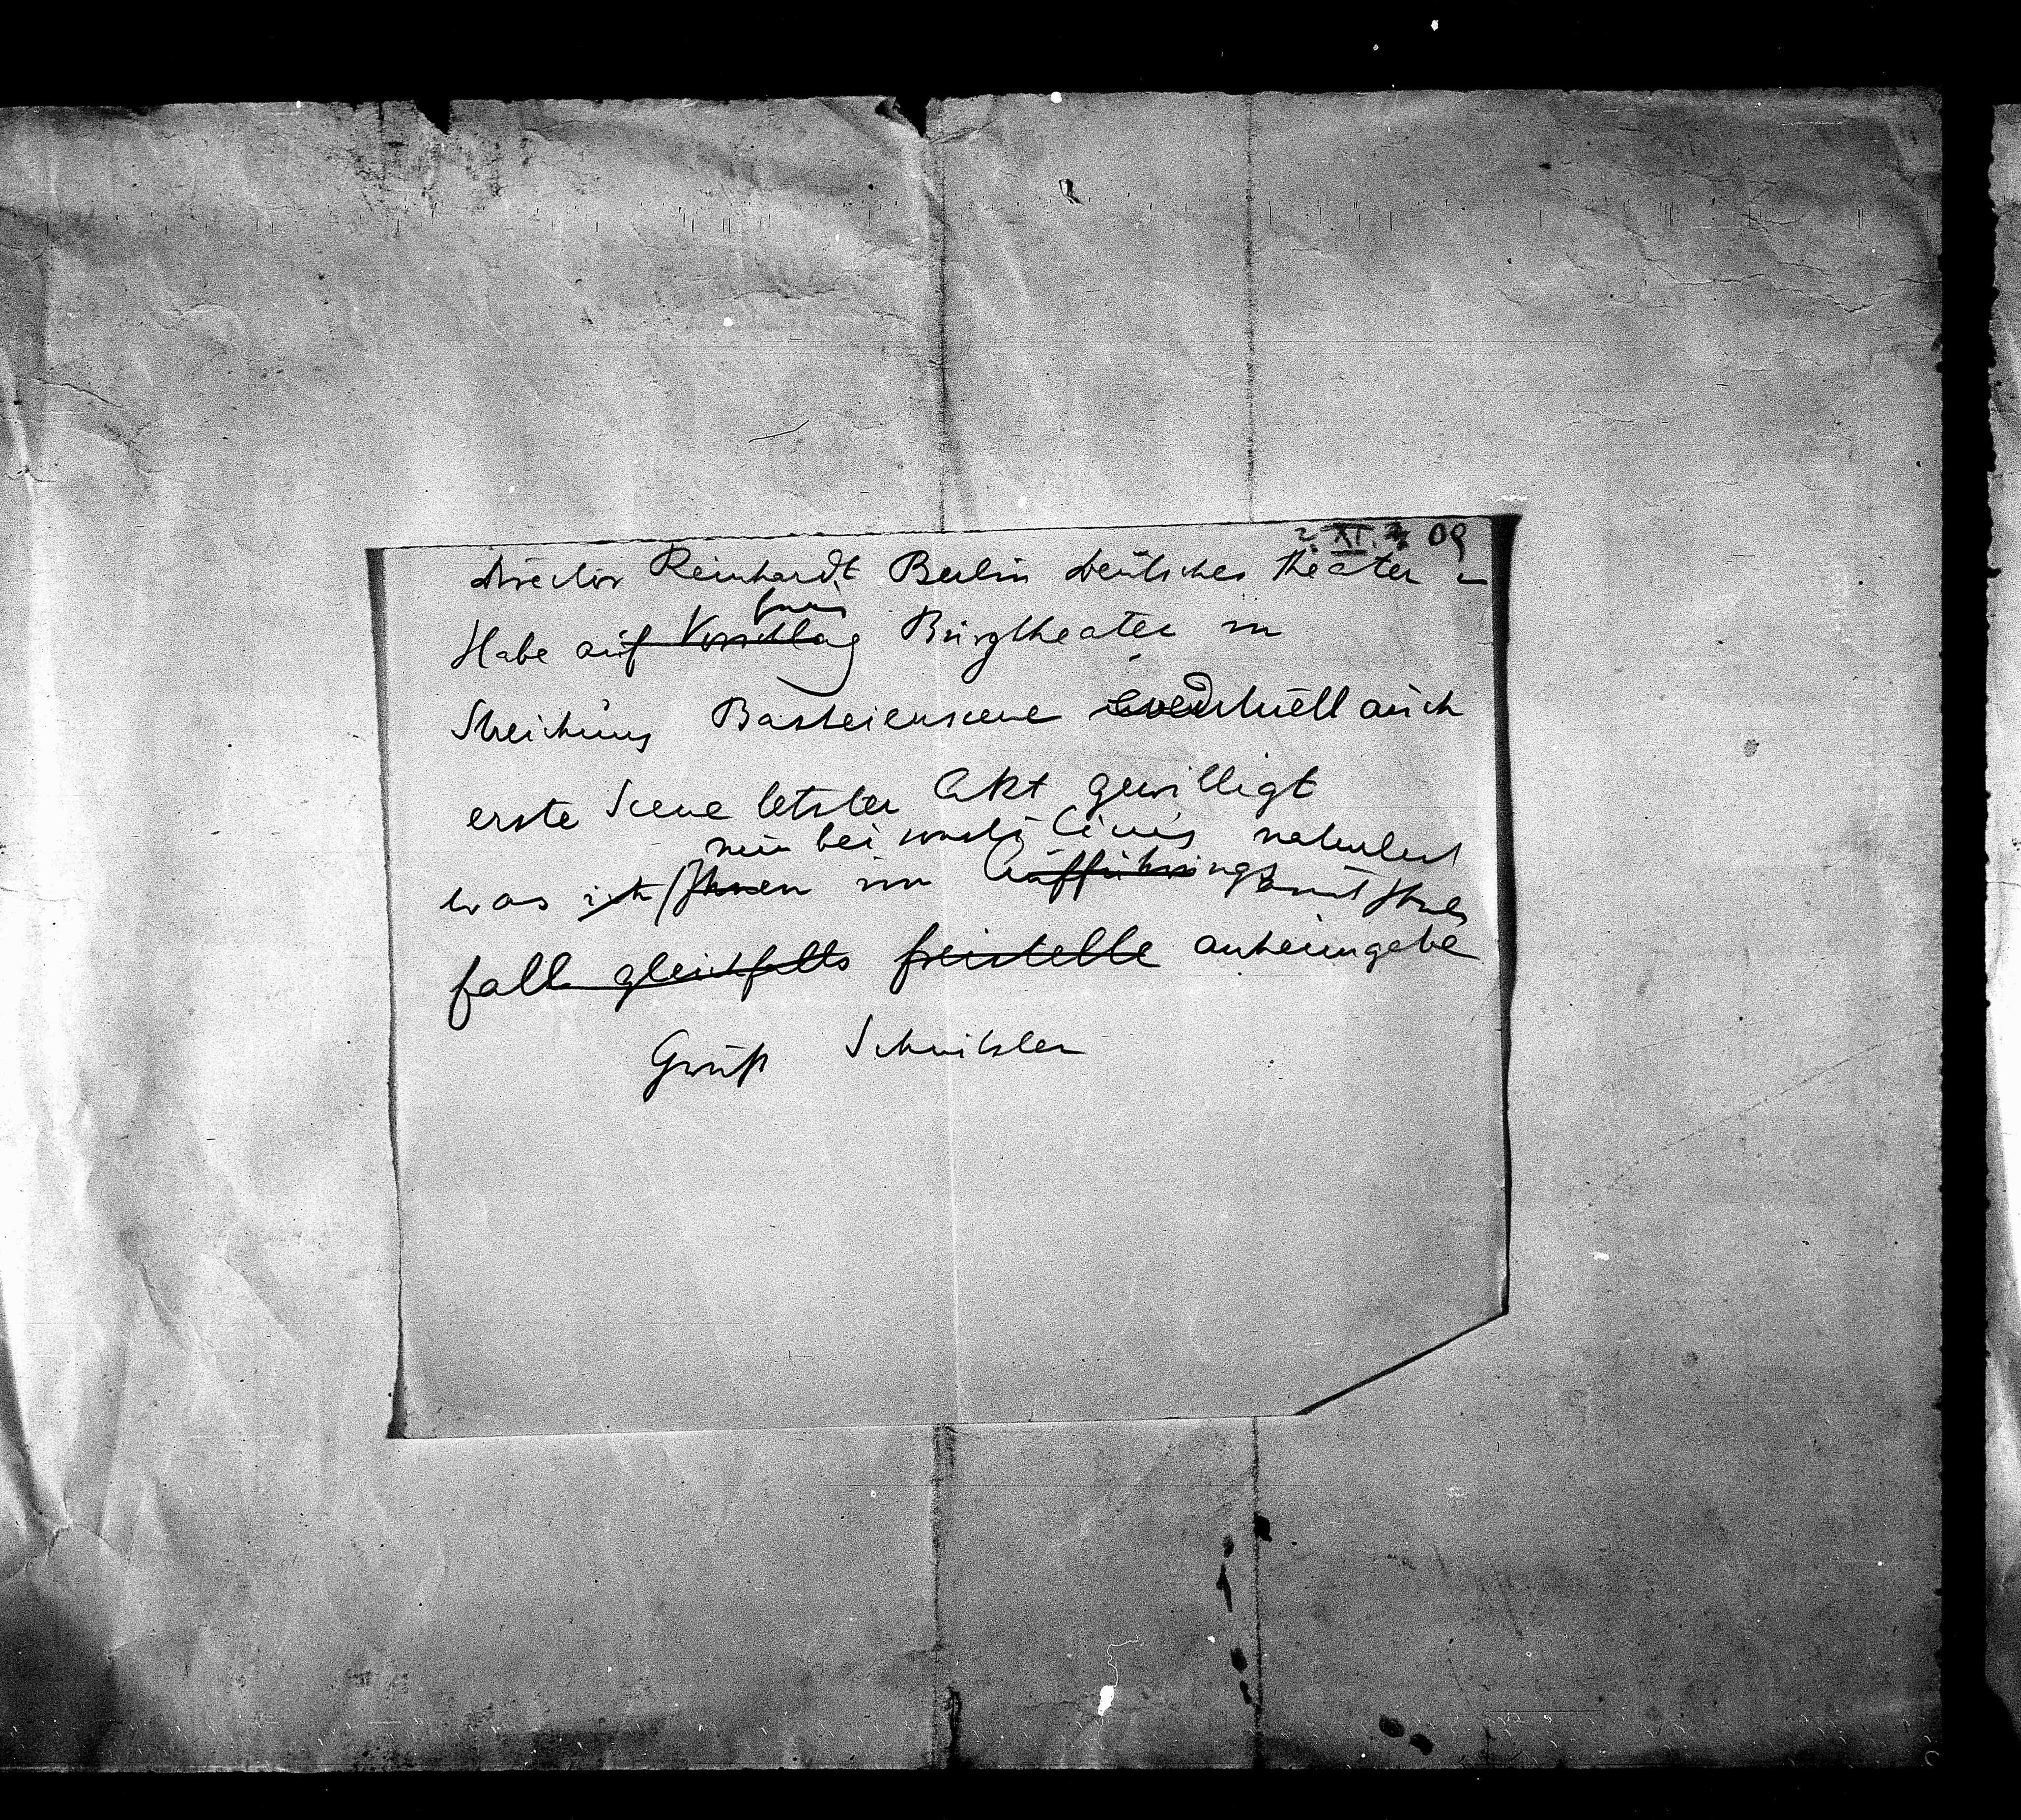 2. XI. 09
Director Reinhardt Berlin deutsches Theater
Habe auf Vorschlag Burgtheater in
Streichung Basteienscene eventuell auch
erste Scene letzter Akt gewilligt
nur bei
was ich Ihnen im Aufführungs
fall gleichfalls freistelle anheimgebe
Gruß Schnitzler